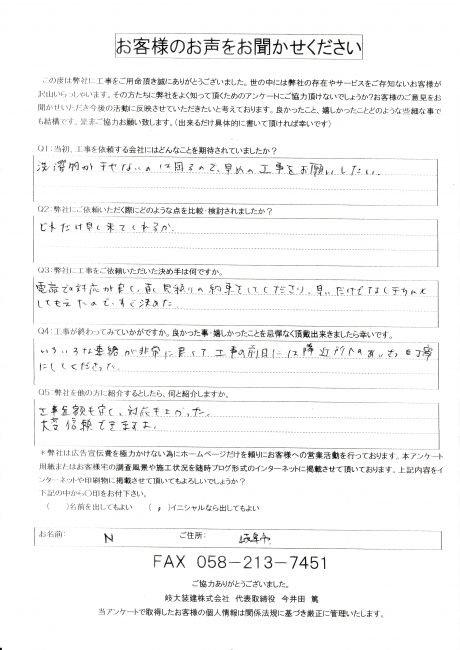 お客様のお声をお聞かせください
この度は弊社に工事をご用命頂き誠にありがとうございました。世の中には弊社の存在やサービスをご存知ないお客様が
沢山いらっしゃいます。その方たちに弊社をよく知って頂くためのアンケートにご協力頂けないでしょうか?お客様のご意見をお
聞かせいただき今後の活動に反映させていただきたいと考えております。良かったこと、嬉しかったことどのような些細な事で
も結構です。是非ご協力お願い致します。(出来るだけ具体的に書いて頂ければ幸いです)
Q1:当初、工事を依頼する会社にはどんなことを期待されていましたか?
洗濯物が干せないのは困るので、早めの工事をお願いしたい。
Q2:弊社にご依頼いただく際にどのような点を比較・検討されましたか?
どれだけ早く来てくれるか。
Q3:弊社に工事をご依頼いただいた決め手は何ですか。
電話での対応が良く、直ぐ見積りの約束をしてくださり、早いだけでなく
してもらえたので、すぐ決めた。
Q4:工事が終わってみていかがですか。良かった事・嬉しかったことを忌憚なく頂戴出来きましたら幸いです。
いろいろな連絡が非常に良くて工事の前日には隣近所へのあいさつも丁寧
にしてくださった。
Q5:弊社を他の方に紹介するとしたら、何と紹介しますか。
工事金額も安く、対応もよかった。
大変信頼できますよ。
*弊社は広告宣伝費を極力かけない為にホームページだけを頼りにお客様への営業活動を行っております。本アンケート
用紙またはお客様宅の調査風景や施工状況を随時ブログ形式のインターネットに掲載させて頂いております。上記内容をイ
ンターネットや印刷物に掲載させて頂いてもよろしいでしょうか?
下記の中から〇印をお付下さい。
( )名前を出してもよい ( )イニシャルなら出してもよい
お名前: N ご住所: 岐阜市
FAX 058-213-7451
ご協力ありがとうございました。
岐大装建株式会社 代表取締役 今井田 篤
当アンケートで取得したお客様の個人情報は関係法規に基づき厳正に管理いたします。